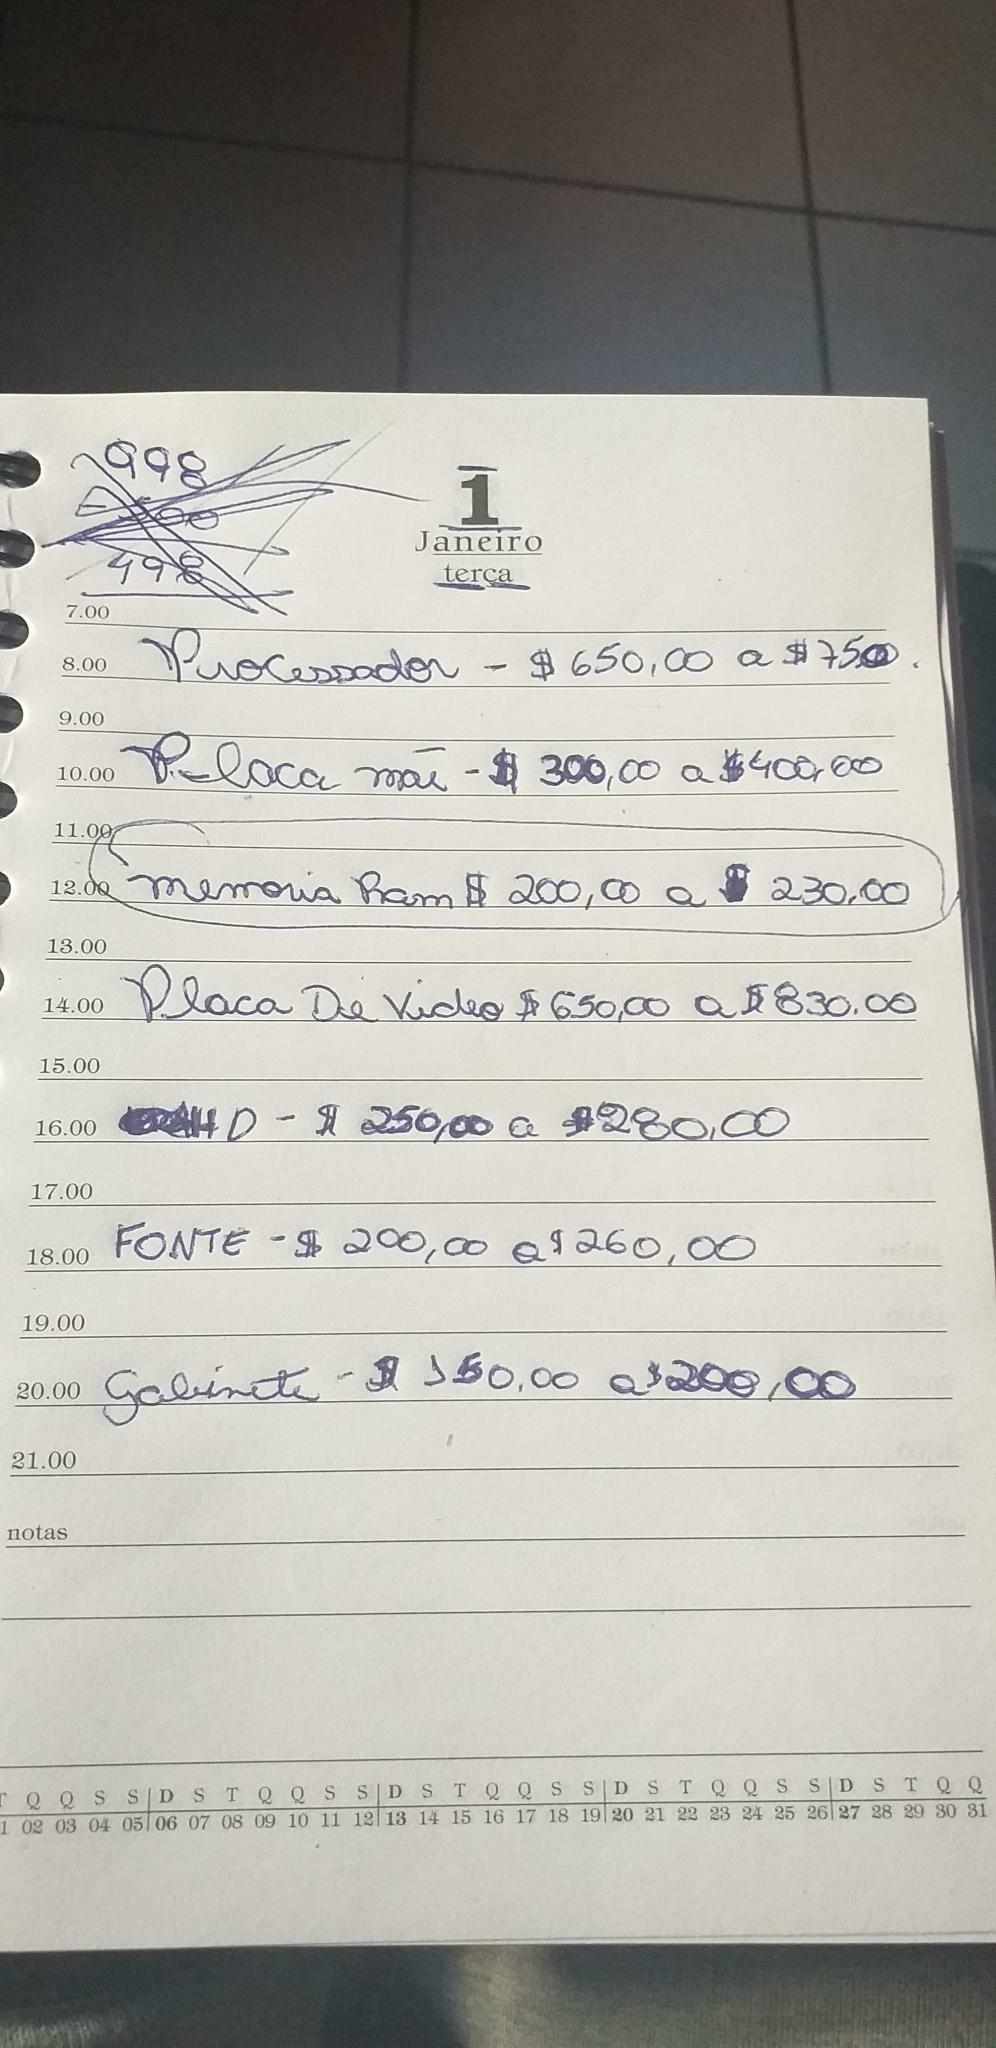 998
- 500
498
1
Janeiro
terça
7.00
8.00 Processador - $ 650,00 a $750.
9.00
10.00 Placa mãi - $ 300,00 a $400,00
11.00
12.00 memoria Ram $ 200,00 a $ 230,00
13.00
14.00 Placa De Video $ 650,00 a $ 830,00
15.00
16.00 HD - $ 250,00 a $280,00
17.00
18.00 FONTE - $ 200,00 a $ 260,00
19.00
20.00 Gabinete - $ 150,00 a $200,00
21.00
notas
T Q Q S S D S T Q Q S S D S T Q Q S S D S T Q Q S S D S T Q Q
1 02 03 04 05 06 07 08 09 10 11 12 13 14 15 16 17 18 19 20 21 22 23 24 25 26 27 28 29 30 31